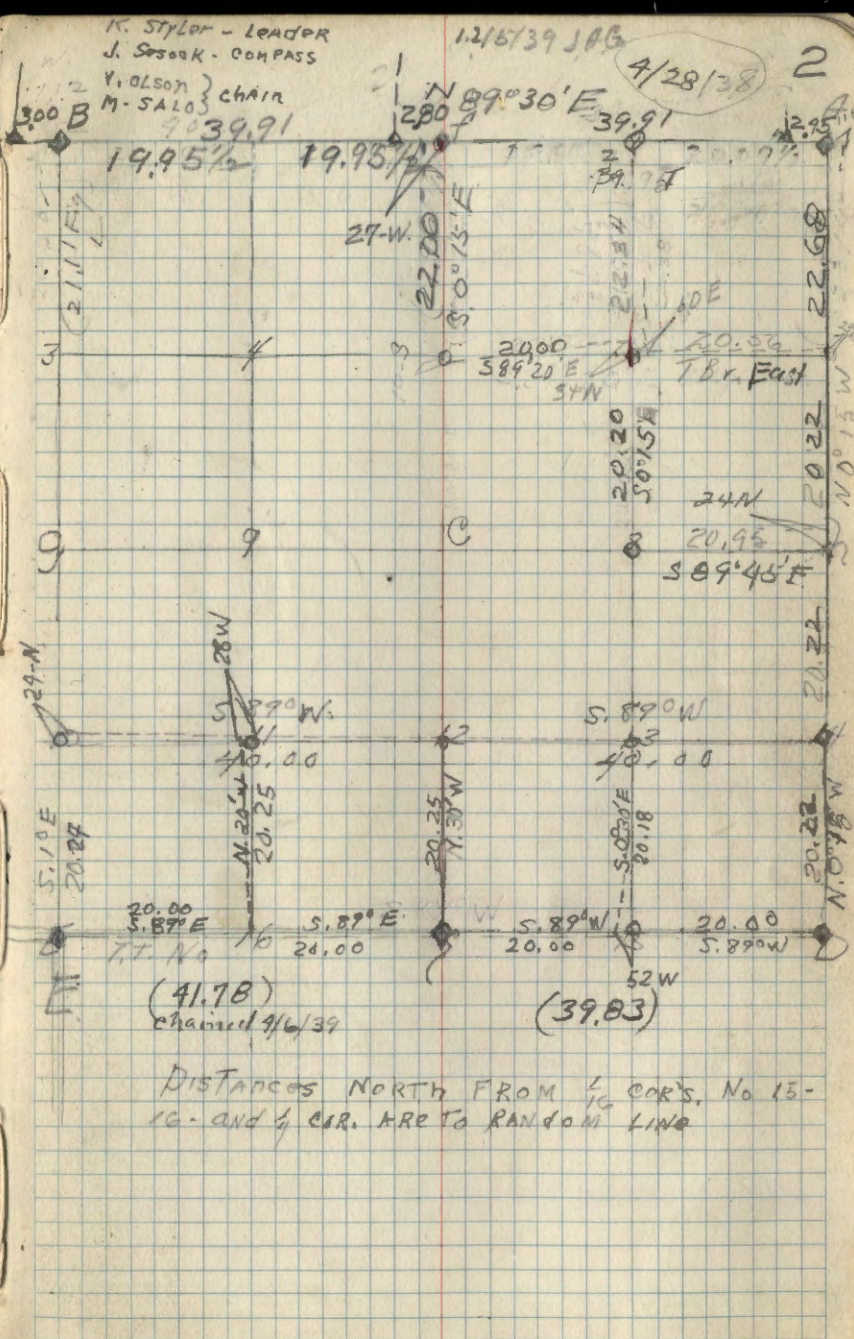 K. Styler - LeADer
J. Sosock - COMPASS
V. OLSON }
M. SALO } CHAIN
12/5/39 JAG
4/28/38
2
3.00 B
2.80
N 89°30' E
39.91
39.91
2.95
19.95½
19.95½
27-W.
22.00
S. 0°15' E
22.68
3
4
20.00
S 89°20' E
34N
40E
20.56
T Br. East
20.20
S 0°15 E
20.22
N 0°15 W
24N
20.95
S 89°45' E
9
C
8
20.22
24-N
28W
S. 89° W.
S. 89° W
40.00
40.00
S. 1° E
20.27
N. 20' W
20.25
20.25
N. 30' W
S. 0°30' E
20.18
20.22
N. 0°15' W
20.00
S. 89° E
T.T. No
16
S. 89° E.
20.00
S. 89° W
20.00
20.00
S. 89° W
52 W
(41.78)
chained 4/6/39
(39.83)
DISTances NORTh FROM 1/16 COR'S. No 15-
16- and ¼ COR. ARe To RANdoM LINe